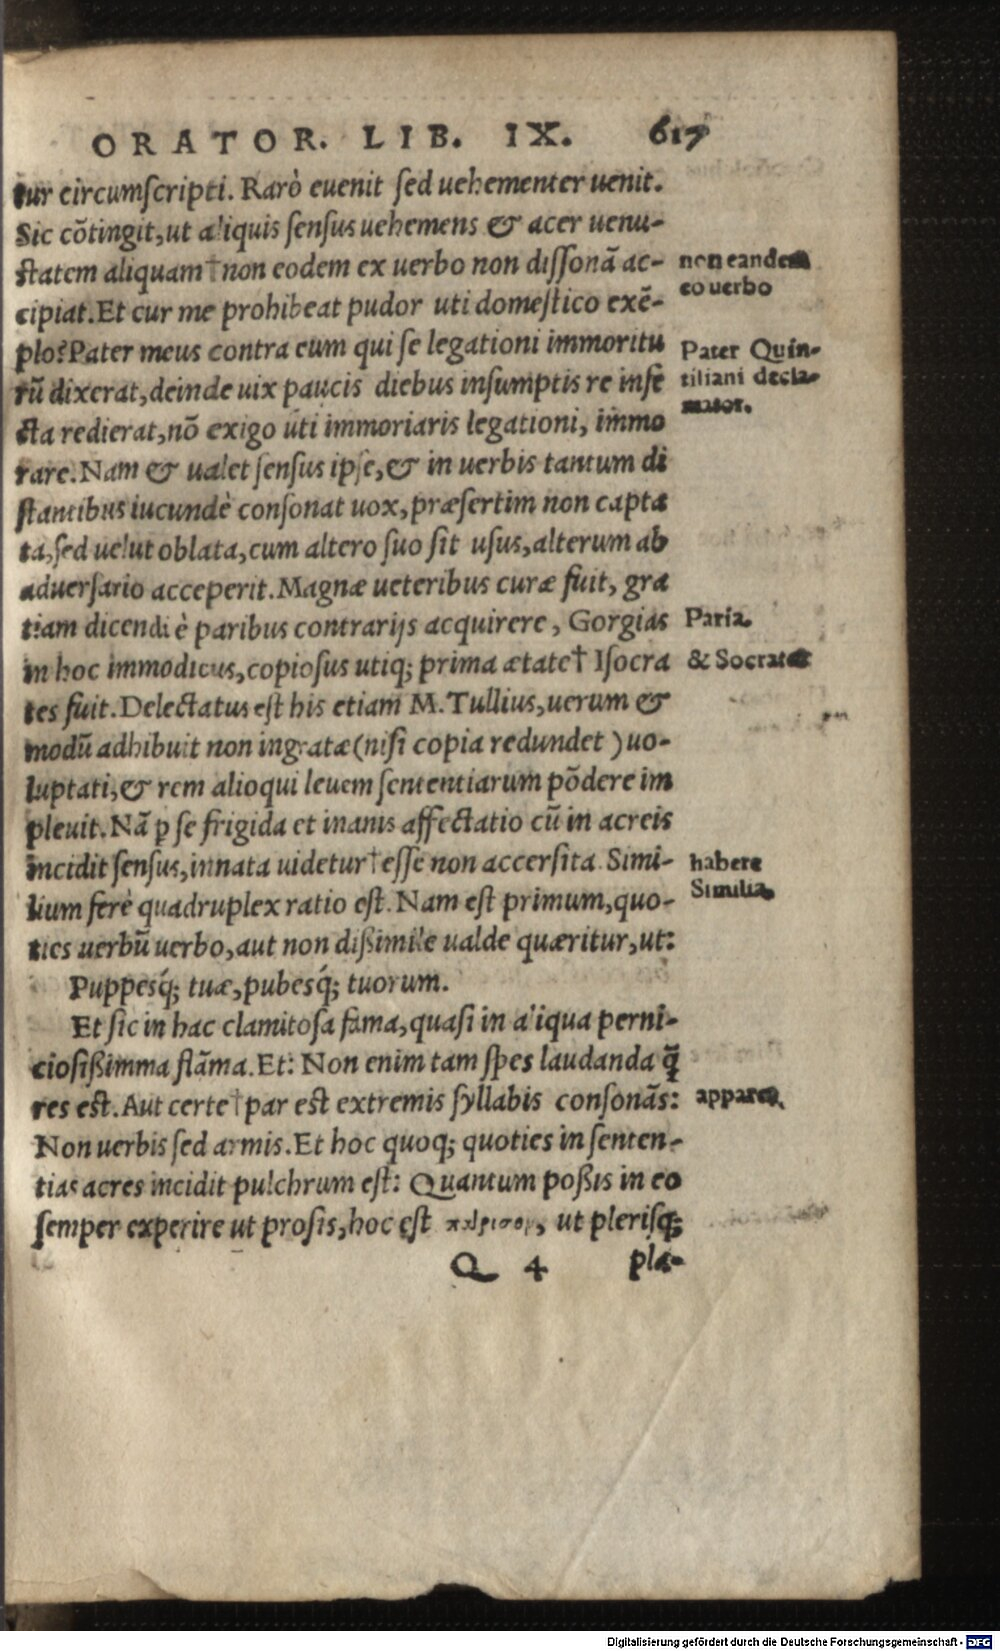 ORATOR. LIB. IX. 617
tur circumscripti. Rarò euenit sed uehementer uenit.
Sic cõtingit, ut aliquis sensus uehemens & acer uenu-
statem aliquam† non eodem ex uerbo non dissonã ac-
non eandem
eo uerbo
cipiat. Et cur me prohibeat pudor uti domestico exẽ-
plo? Pater meus contra eum qui se legationi immoritu
Pater Quin-
rũ dixerat, deinde uix paucis diebus insumptis re infe
tiliani decla-
mator.
cta redierat, nõ exigo uti immoriaris legationi, immo
rare. Nam & ualet sensus ipse, & in uerbis tantum di
stantibus iucundè consonat uox, præsertim non capta
ta, sed uelut oblata, cum altero suo sit usus, alterum ab
aduersario acceperit. Magnæ ueteribus curæ fuit, gra
tiam dicendi è paribus contrarijs acquirere, Gorgias
Paria.
in hoc immodicus, copiosus utiq; prima ætate† Isocra
& Socrates
tes fuit. Delectatus est his etiam M. Tullius, uerum &
modũ adhibuit non ingratæ (nisi copia redundet) uo-
luptati, & rem alioqui leuem sententiarum põdere im
pleuit. Nã ꝑ se frigida et inanis affectatio cũ in acreis
incidit sensus, innata uidetur† esse non accersita. Simi-
habere
Similia.
lium ferè quadruplex ratio est. Nam est primum, quo-
ties uerbũ uerbo, aut non dißimile ualde quæritur, ut:
Puppesq́; tuæ, pubesq́; tuorum.
Et sic in hac clamitosa fama, quasi in aliqua perni-
ciosißimma flãma. Et: Non enim tam spes laudanda q̃
res est. Aut certe† par est extremis syllabis consonãs:
Non uerbis sed armis. Et hoc quoq; quoties in senten-
tias acres incidit pulchrum est: Quantum poßis in eo
semper experire ut prosis, hoc est , ut plerisq;
Q 4 pla-
Digitalisierung gefördert durch die Deutsche Forschungsgemeinschaft - DFG